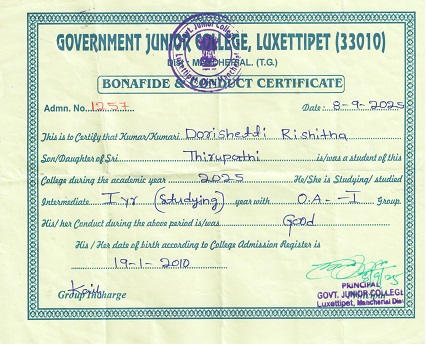 GOVERNMENT JUNIOR COLLEGE, LUXETTIPET (33010)
Dist. MANCHERIAL. (T.G.)
BONAFIDE & CONDUCT CERTIFICATE
Admn. No. 1257 Date: 8-9-2025
This is to Certify that Kumar/Kumari Dorisheddi Rishitha
Son/Daughter of Sri Thirupathi is/was a student of this
College during the academic year 2025 He/She is Studying/studied
Intermediate I yr (Studying) year with O.A-I Group.
His/her Conduct during the above period is/was Good
His / Her date of birth according to College Admission Register is
19-1-2010
Group Incharge
PRINCIPAL
GOVT. JUNIOR COLLEGE
Luxettipet, Mancherial Dist